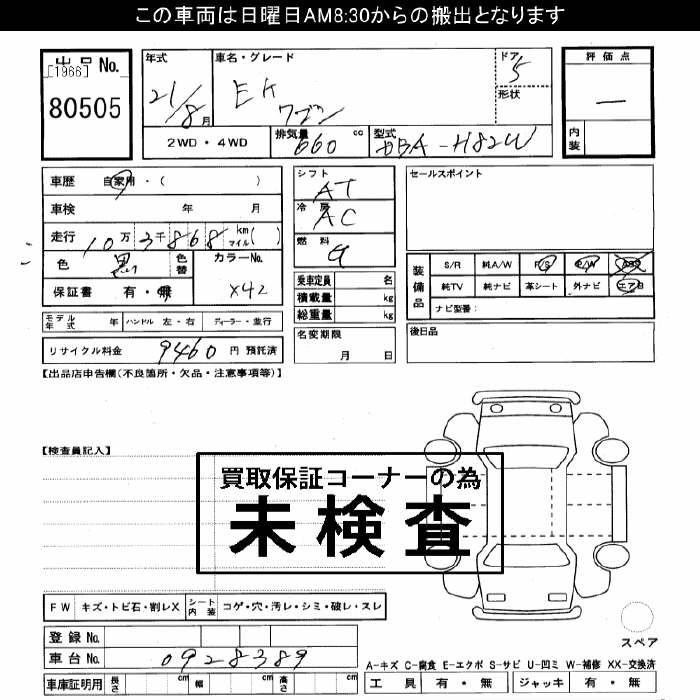 この車両は日曜日AM8:30からの搬出となります
出品No.
[1966]
80505
年式
21/8月
車名・グレード
EK
ワゴン
ドア
5
形状
評価点
—
内装
2WD・4WD
排気量
660 cc
型式
DBA-H82W
車歴 自家用・( )
車検 年 月
走行 10万3千868 km マイル( )
色 黒 色替 カラーNo.
X42
保証書 有・無
モデル年式 年 ハンドル 左・右 ディーラー・並行
リサイクル料金 9460 円 預託済
シフト
AT
冷房
AC
燃料
G
乗車定員 名
積載量 kg
総重量 kg
名変期限
月 日
セールスポイント
装備品
S/R 純A/W P/S P/W ABS
純TV 純ナビ 革シート 外ナビ エアB
ナビ型番:
後日品
【出品店申告欄(不良箇所・欠品・注意事項等)】
【検査員記入】
買取保証コーナーの為
未検査
FW キズ・トビ石・割レX シート内装 コゲ・穴・汚レ・シミ・破レ・スレ
登録No.
車台No. 0928389
車庫証明用 長さ cm 幅 cm 高さ cm
スペア
A-キズ C-腐食 E-エクボ S-サビ U-凹ミ W-補修 XX-交換済
工具 有・無 ジャッキ 有・無